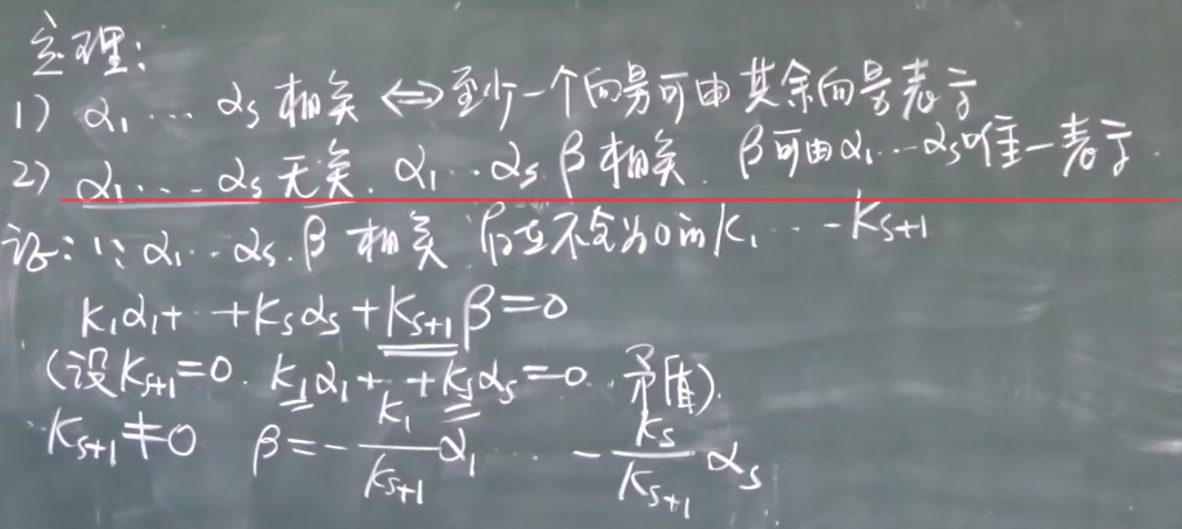 定理:
1) α₁ ⋯ αs 相关 ⇔ 至少一个向量可由其余向量表示
2) α₁ ⋯ αs 无关. α₁ ⋯ αs β 相关. β可由α₁ ⋯ αs唯一表示.
证: 1: α₁ ⋯ αs. β 相关 存在不全为0的k₁ ⋯ ks+1
k₁α₁+ ⋯ +ksαs+ks+1β=0
(设ks+1=0. k₁α₁+ ⋯ +ksαs=0. 矛盾).
ks+1≠0 β=-k₁/ks+1 α₁ ⋯ -ks/ks+1 αs